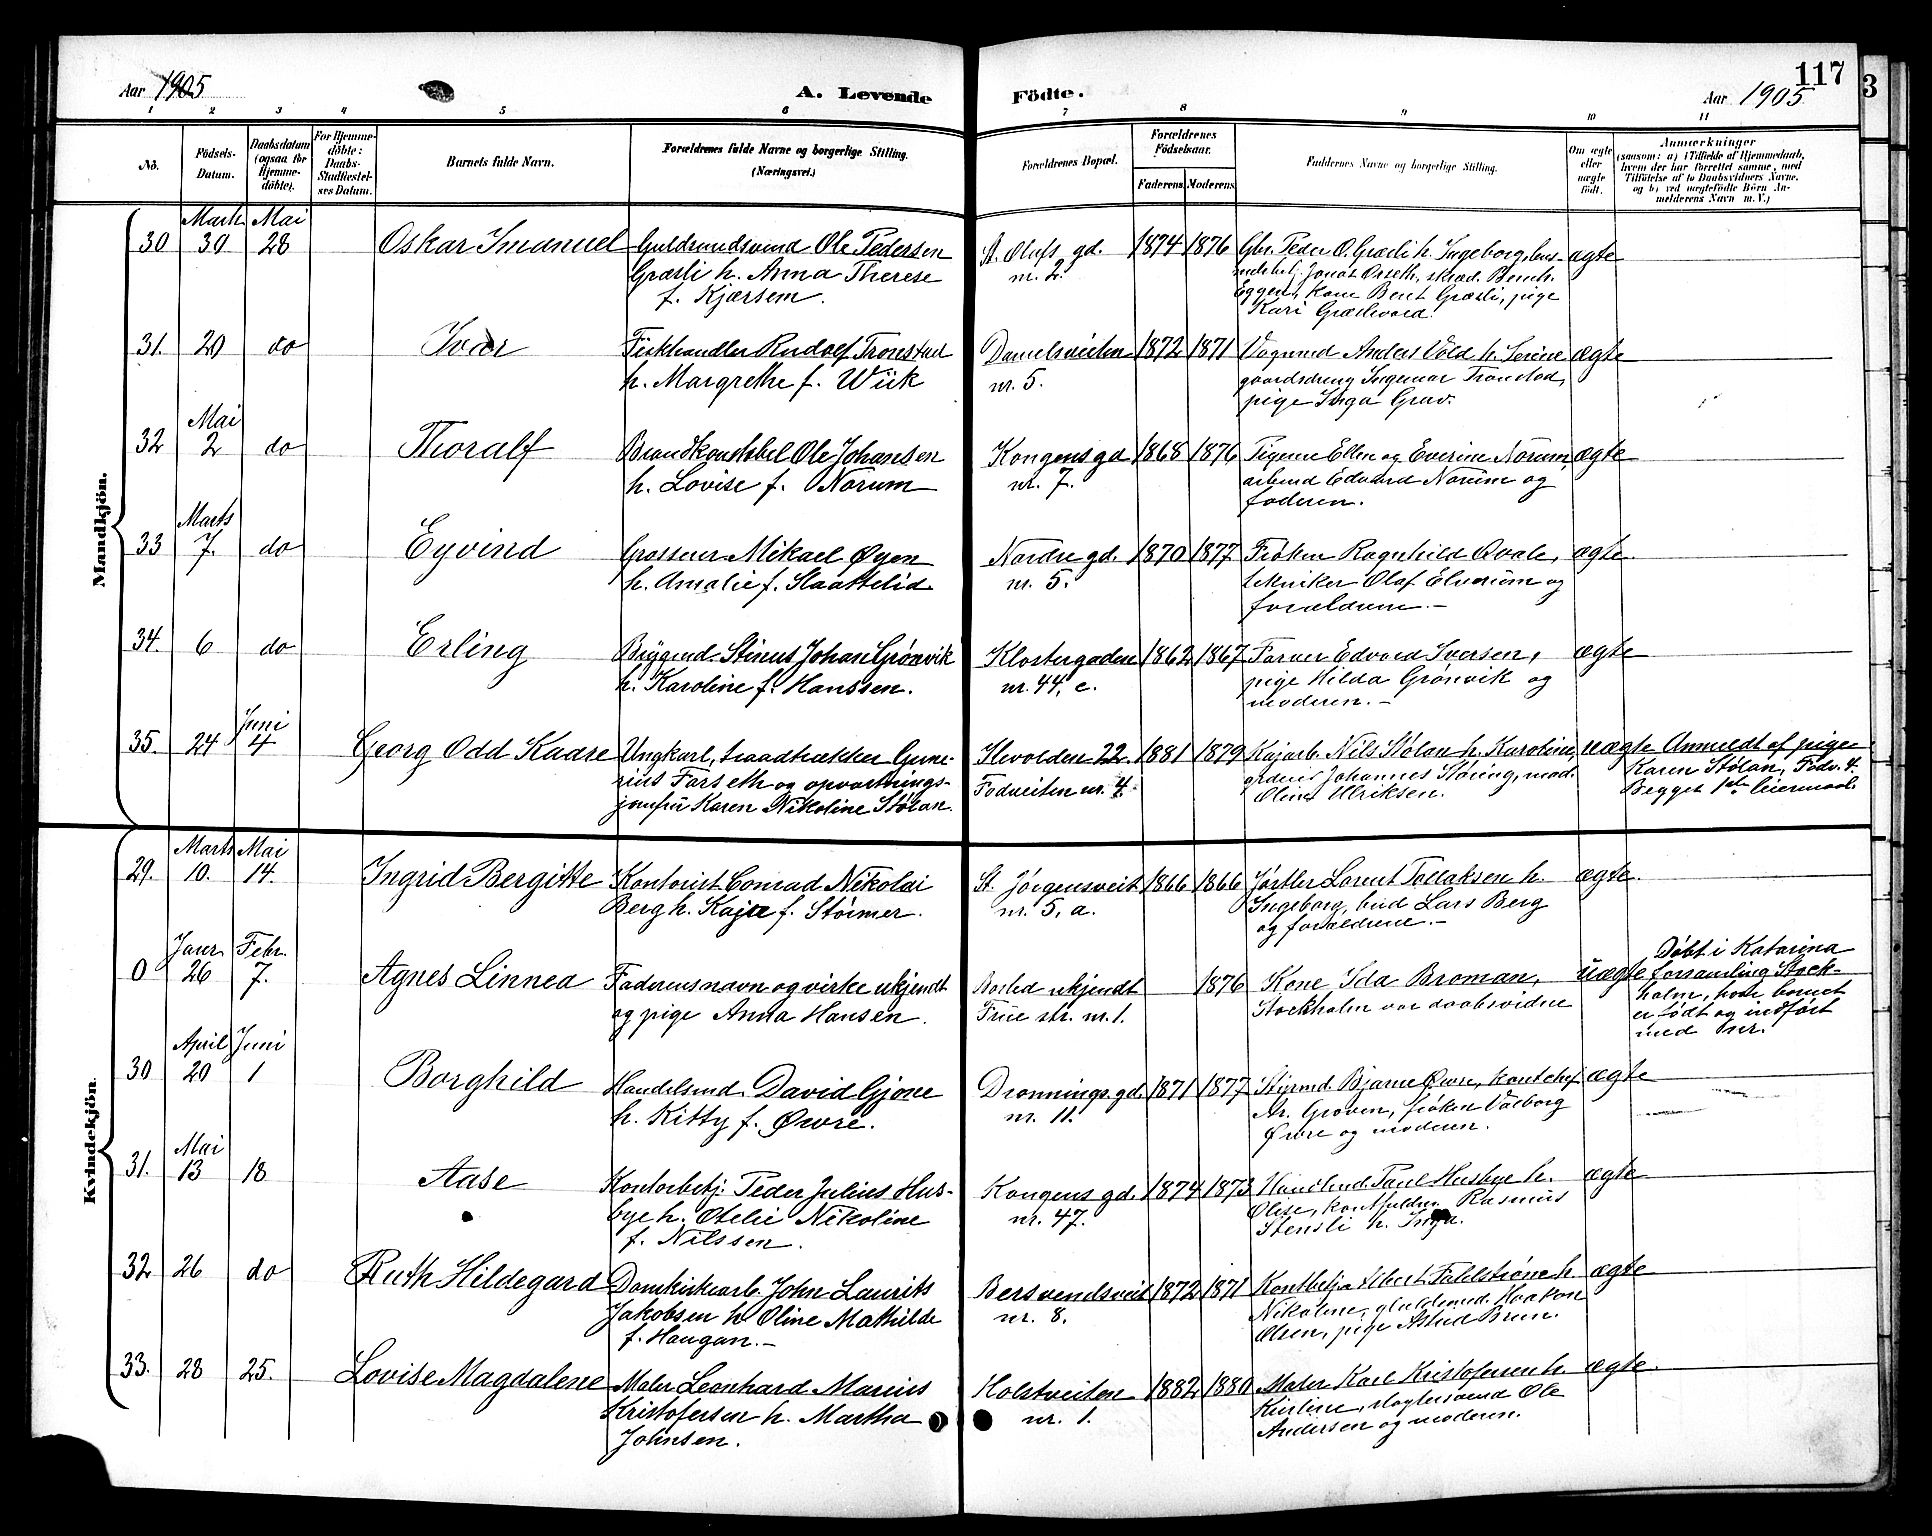 Aar 1905
A. Levende
Födte.
117
3
Aar 1905
1 2 3 4 5 6 7 8 9 10 11
No.
Födsels-
Datum.
Daabsdatum
(ogsaa for
Hjemme-
döbte).
For Hjemme-
döbte:
Daabs-
Stadfæstel-
ses Datum.
Barnets fulde Navn.
Forældrenes fulde Navne og borgerlige Stilling.
(Næringsvei.)
Forældrenes Bopæl.
Forældrenes
Födselsaar.
Faderens
Moderens
Faddernes Navne og borgerlige Stilling.
Om ægte
eller
uægte
födt.
Anmærkninger
(saasom: a) i Tilfælde af Hjemmedaab,
hvem der har forrettet samme, med
Tilföielse af to Daabsvidners Navne.
og b) ved uægtefödte Börn An-
melderens Navn m. V.)
Mandkjön.
30 Marts 30 Mai 28 Oskar Imanuel
Guldsmedsvend Ole Pedersen
Græsli h. Anna Therese
f. Kjærsem.
St. Olafs gd.
nr. 2.
1874 1876
Gbr. Peder O. Græsli h. Ingeborg,
Jonas Orseth,
Eggen, kone Beret Græsli, pige
Kari
ægte
31. 20 do Ivar
Fiskhandler Rudolf Tronstad
h. Margrethe f. Wiik
Danielsveiten
nr. 5.
1872 1871
Vognmd Anders Vold h. Serine
gaardsdreng Ingemar Tronstad,
pige Inga Grav.
ægte
32 Mai 2 do Thoralf
Brandkonstabel Ole Johansen
h. Lovise f. Norum
Kongens gd
nr. 7.
1868 1876
Pigerne Ellen og Everine Norum,
arbmd Edvard Norum og
faderen.
ægte
33 Marts 7. do Eyvind
Grosserer Mikael Øyen
h. Amalie f. Slaattelid.
Nordre gd.
nr. 5.
1870 1877
Frøken Ragnhild Qvale,
tekniker Olaf Elverum og
forældrene.
ægte
34. 6 do Erling
Bryggmd. Stinus Johan Grønvik
h. Karoline f. Hanssen.
Klostergaden
nr. 44, c.
1862 1867
Farver Edvard Iversen,
pige Hilda Grønvik og
moderen.
ægte
35. 24 Juni 4 Georg Odd Kaare
Ungkarl, traadtrækker Gune-
rius Farseth og opvartnings-
jomfru Karen Nikoline Stølan.
Ilevolden 22.
Fodveiten nr. 4.
1881 1879
Kajarb. Nils Stølan h. Karoline,
Johannes Støring, mad.
Oline Ulriksen.
uægte
Anmeldt af pige
Karen Stølan, Fodv. 4.
Begges 1ste leiermaal.
Kvindekjön.
29. Marts 10. Mai 14. Ingrid Bergitte
Kontorist Conrad Nikolai
Berg h. Kaja f. Størmer.
St. Jørgensveit
nr. 5, a.
1866 1866
Lorent Tollaksen h.
Ingeborg, bud Lars Berg
og forældrene.
ægte.
0 Janr. 26 Febr. 7. Agnes Linnea
Faderens navn og virke ukjendt
og pige Anna Hansen.
Bosted ukjendt
Frue str. nr. 1.
1876
Kone Ida Broman,
Stockholm var daabsvidne
uægte
Døbt i Katarina
forsamling Stock-
holm, hvor barnet
er født og indført
med nr.
30 April 20 Juni 1 Borghild
Handelsmd. David Gjone
h. Kitty f. Øwre.
Dronnings. gd.
nr. 11.
1871 1877
Styrmd. Bjarne Øwre, kontchef
Ar. Groven, frøken Valborg
Øwre og moderen.
ægte
31. Mai 13 18 Aase
Kontorbetj. Peder Julius Hus-
bye h. Otelie Nikoline
f. Nilssen.
Kongens gd.
nr. 47.
1874 1873
Handlmd Paul Husbye h.
Olise, Rasmus
Stensli h. Inga.
ægte
32 26 do Ruth Hildegard
Domkirkearb. John Laurits
Jakobsen h. Oline Mathilde
f. Haugan.
Bersvendsveit
nr. 8.
1872 1871
Kontbetj. Albert h.
Nikoline, guldsmed Haakon
Olsen, pige Astrid Bruun.
ægte
33. 28 25. Lovise Magdalene
Maler Leonhard Marius
Kristofersen h. Martha
Johnsen.
Holstveiten
nr. 1.
1882 1880
Maler Karl Kristofersen h.
Kirstine, slagtersvend Ole
Andersen og moderen.
ægte.